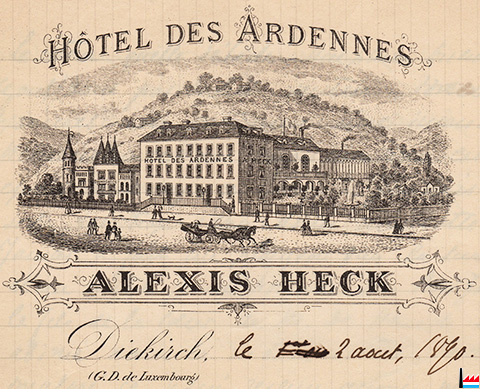 HÔTEL DES ARDENNES
HOTEL DES ARDENNES A. HECK
ALEXIS HECK
Diekirch, le 2 aout, 1890.
(G. D. de Luxembourg)